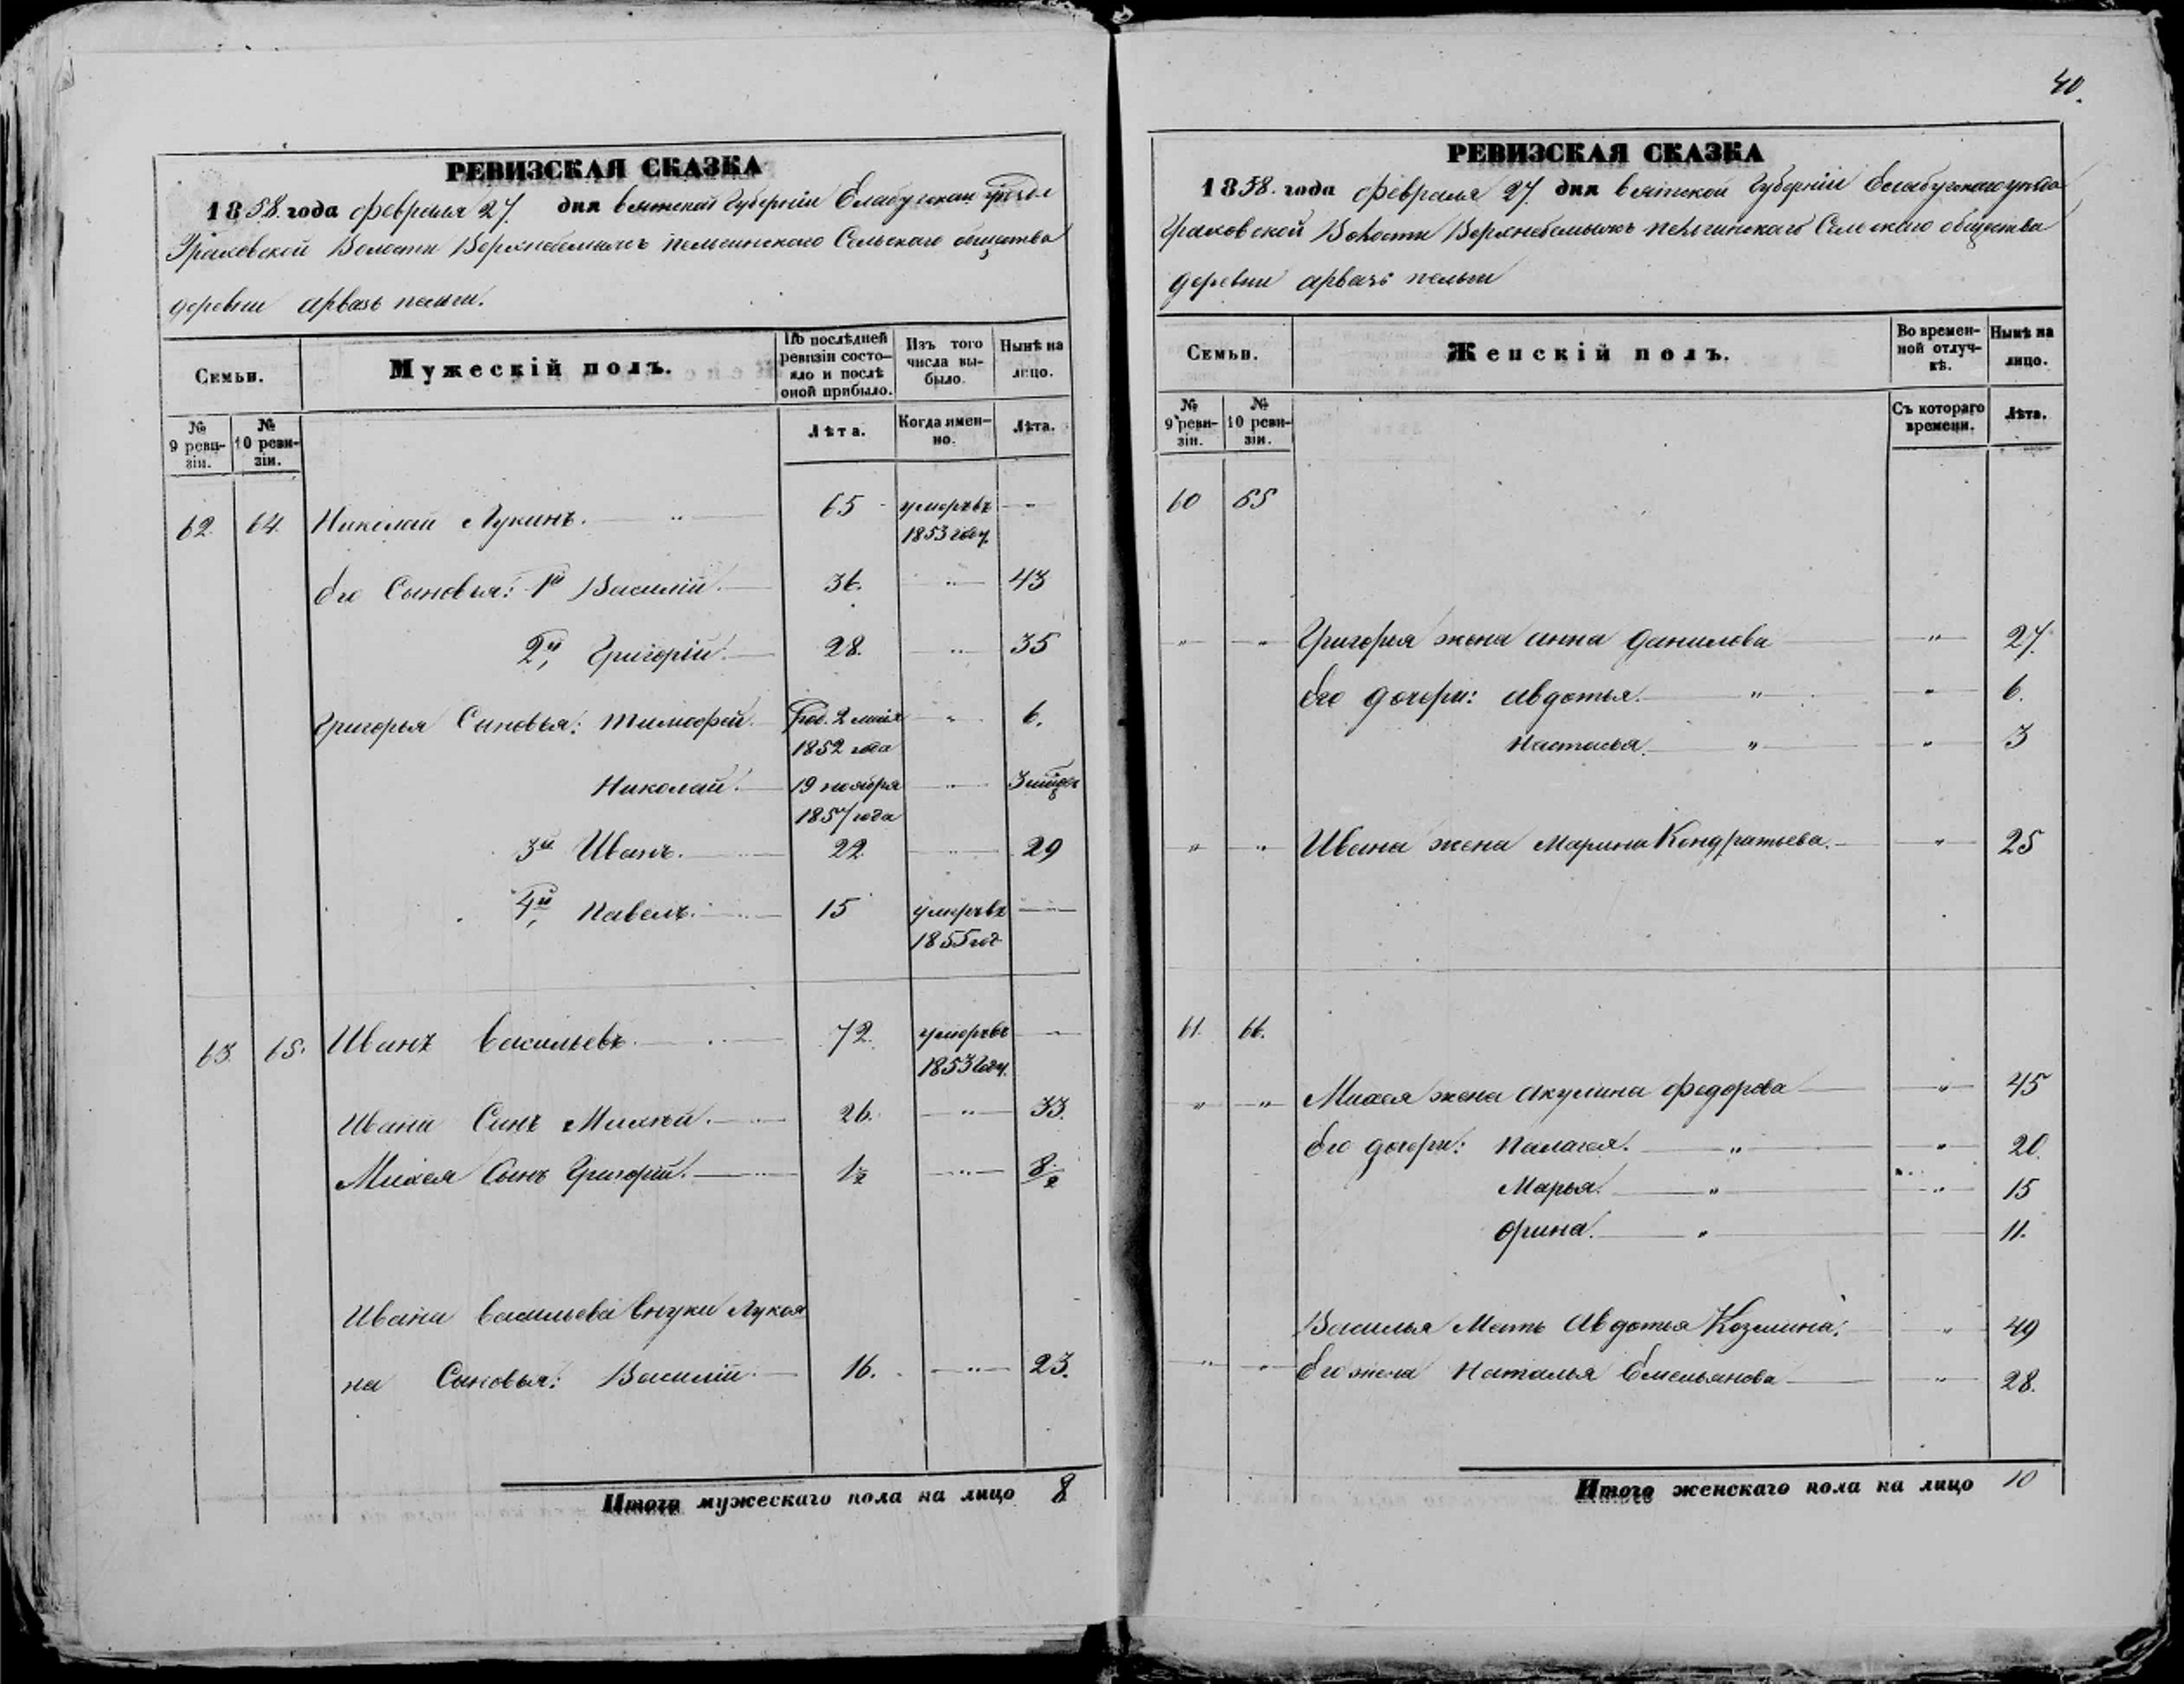 40.
РЕВИЗСКАЯ СКАЗКА
1858. года февраля 27. дня Вятской Губерніи Елабужскаго уѣзда
Граховской Волости Верхнебемыжъ пельгинскаго Сельскаго общества
деревни арвазь пельги.
Семьи.
Мужескій полъ.
По послѣдней ревизіи состояло и послѣ оной прибыло.
Изъ того числа выбыло.
Нынѣ на лицо.
№ 9 ревизіи.
№ 10 ревизіи.
Лѣта.
Когда именно.
Лѣта.
62. 64. Николай Лукинъ. 65 умеръ въ
1853 году.
Его Сыновья: 1й Василій. 36. 43
2й, Григорій. 28. 35
Григорья Сыновья: Тимофей. Род. 2 мая 6.
1852 года
Николай. 19 ноября
1857 года
3й Иванъ. 22. 29
4й, Павелъ. 15 умеръ въ
1855 год
63. 65. Иванъ Васильевъ. 72. умеръ въ
1853 году.
Ивана Сынъ Михей. 26. 33.
Михея Сынъ Григорій. 1/2 8/2
Ивана Васильева внуки Лукоя
на Сыновья: Василій. 16. 23.
Итого мужескаго пола на лицо 8
РЕВИЗСКАЯ СКАЗКА
1858. года февраля 27. дня Вятской Губерніи Елабужскаго уѣзда
Граховской Волости Верхнебемыжъ пельгинскаго Сельскаго общества
деревни арвазь пельги
Семьи.
Женскій полъ.
Во временной отлучкѣ.
Нынѣ на лицо.
№ 9 ревизіи.
№ 10 ревизіи.
Съ котораго времени.
Лѣта.
60 65
" " Григорья жена анна данилова " 27.
Его дочери: авдотья. " " 6.
Настасья. " " 3
" " Ивана жена Марина Кондратьева. " 25
61. 66.
" " Михея жена акулина федорова " 45
Его дочери: Палагея. " " 20.
Марья. " " 15
Орина. " 11.
Василья Мать Авдотья Козмина. " 49
" " Его жена Наталья Емельянова " 28.
Итого женскаго пола на лицо 10